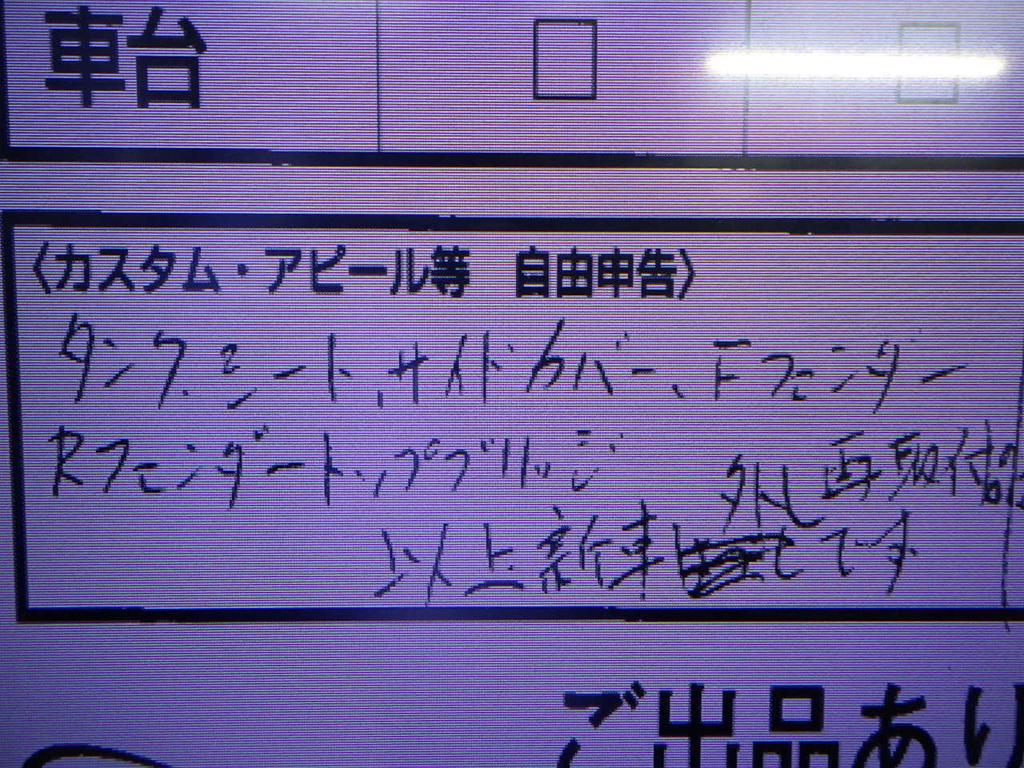 車台 □ □
〈カスタム・アピール等 自由申告〉
タンク、シート、サイドカバー、Fフェンダー
Rフェンダートップブリッジ
外し 再取付
以上新車 です
ご出品あり